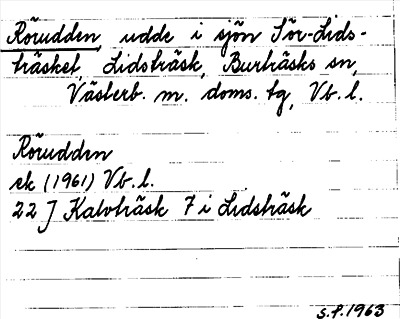 Rörudden, udde i sjön Sör-Lids-
träsket, Lidsträsk, Burträsks sn,
Västerb. m. doms. tg, Vb. l.
Rörudden
ek (1961) Vb. l.
22 J Kalvträsk 7 i Lidsträsk
S.P. 1963